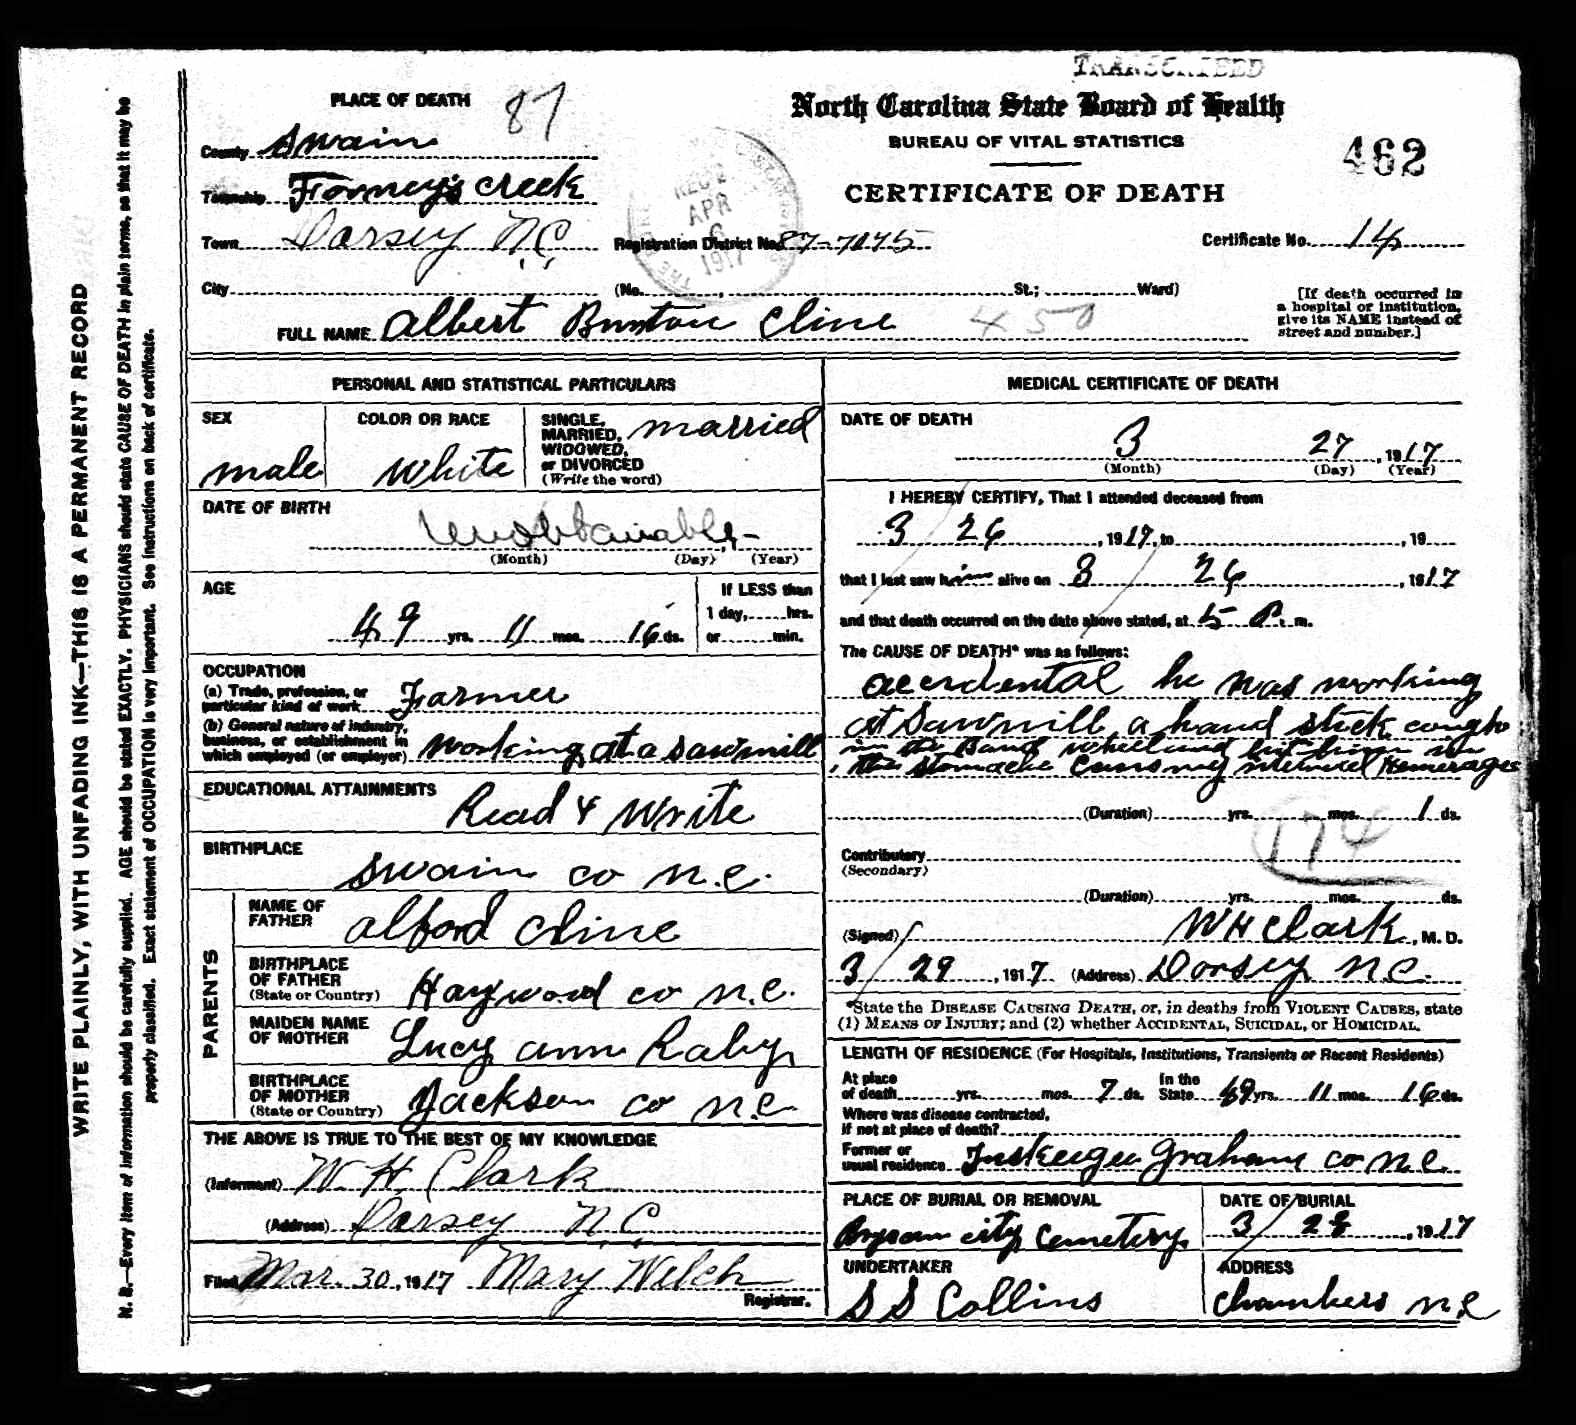 TRANSCRIBED
North Carolina State Board of Health
BUREAU OF VITAL STATISTICS
CERTIFICATE OF DEATH
462
PLACE OF DEATH 87
County Swain
Township Forney's Creek
Town Dorsey N.C. Registration District No. 87-7175 Certificate No. 14
REC'D APR 6 1917
City (No. , St.; Ward)
[If death occurred in a hospital or institution, give its NAME instead of street and number.]
FULL NAME Albert Burton Cline 450
PERSONAL AND STATISTICAL PARTICULARS
SEX male
COLOR OR RACE White
SINGLE, MARRIED, WIDOWED, or DIVORCED (Write the word) married
DATE OF BIRTH Unobtainable
(Month) (Day) (Year)
AGE 49 yrs. 11 mos. 16 ds.
If LESS than 1 day, hrs. or min.
OCCUPATION
(a) Trade, profession, or particular kind of work Farmer
(b) General nature of industry, business, or establishment in which employed (or employer) Working at a sawmill
EDUCATIONAL ATTAINMENTS Read & Write
BIRTHPLACE Swain co n.c.
PARENTS
NAME OF FATHER Alford Cline
BIRTHPLACE OF FATHER (State or Country) Haywood co n.c.
MAIDEN NAME OF MOTHER Lucy ann Raby
BIRTHPLACE OF MOTHER (State or Country) Jackson co n.c.
THE ABOVE IS TRUE TO THE BEST OF MY KNOWLEDGE
(Informant) W. H. Clark
(Address) Dorsey N.C.
Filed Mar. 30, 1917 Mary Welch
Registrar.
MEDICAL CERTIFICATE OF DEATH
DATE OF DEATH 3 27, 1917
(Month) (Day) (Year)
I HEREBY CERTIFY, That I attended deceased from
3 26, 1917, to , 19
that I last saw him alive on 3 26, 1917
and that death occurred on the date above stated, at 5 P. m.
The CAUSE OF DEATH* was as follows:
accidental he was working
at Sawmill, a hand stick caught
in the Band wheel and hit him in
the stomache causing internal Hemerage
(Duration) yrs. mos. 1 ds.
174
Contributory (Secondary)
(Duration) yrs. mos. ds.
(Signed) W H Clark, M. D.
3/29, 1917 (Address) Dorsey n.c.
*State the DISEASE CAUSING DEATH, or, in deaths from VIOLENT CAUSES, state
(1) MEANS OF INJURY; and (2) whether ACCIDENTAL, SUICIDAL, or HOMICIDAL.
LENGTH OF RESIDENCE (For Hospitals, Institutions, Transients or Recent Residents)
At place of death yrs. mos. 7 ds. In the State 49 yrs. 11 mos. 16 ds.
Where was disease contracted, if not at place of death?
Former or usual residence Tuskeegee Graham co n.c.
PLACE OF BURIAL OR REMOVAL
Bryson city Cemetery
DATE OF BURIAL
3/28, 1917
UNDERTAKER
S S Collins
ADDRESS
Chambers n.c
WRITE PLAINLY, WITH UNFADING INK—THIS IS A PERMANENT RECORD
N. B.—Every item of information should be carefully supplied. AGE should be stated EXACTLY. PHYSICIANS should state CAUSE OF DEATH in plain terms, so that it may be
properly classified. Exact statement of OCCUPATION is very important. See instructions on back of certificate.